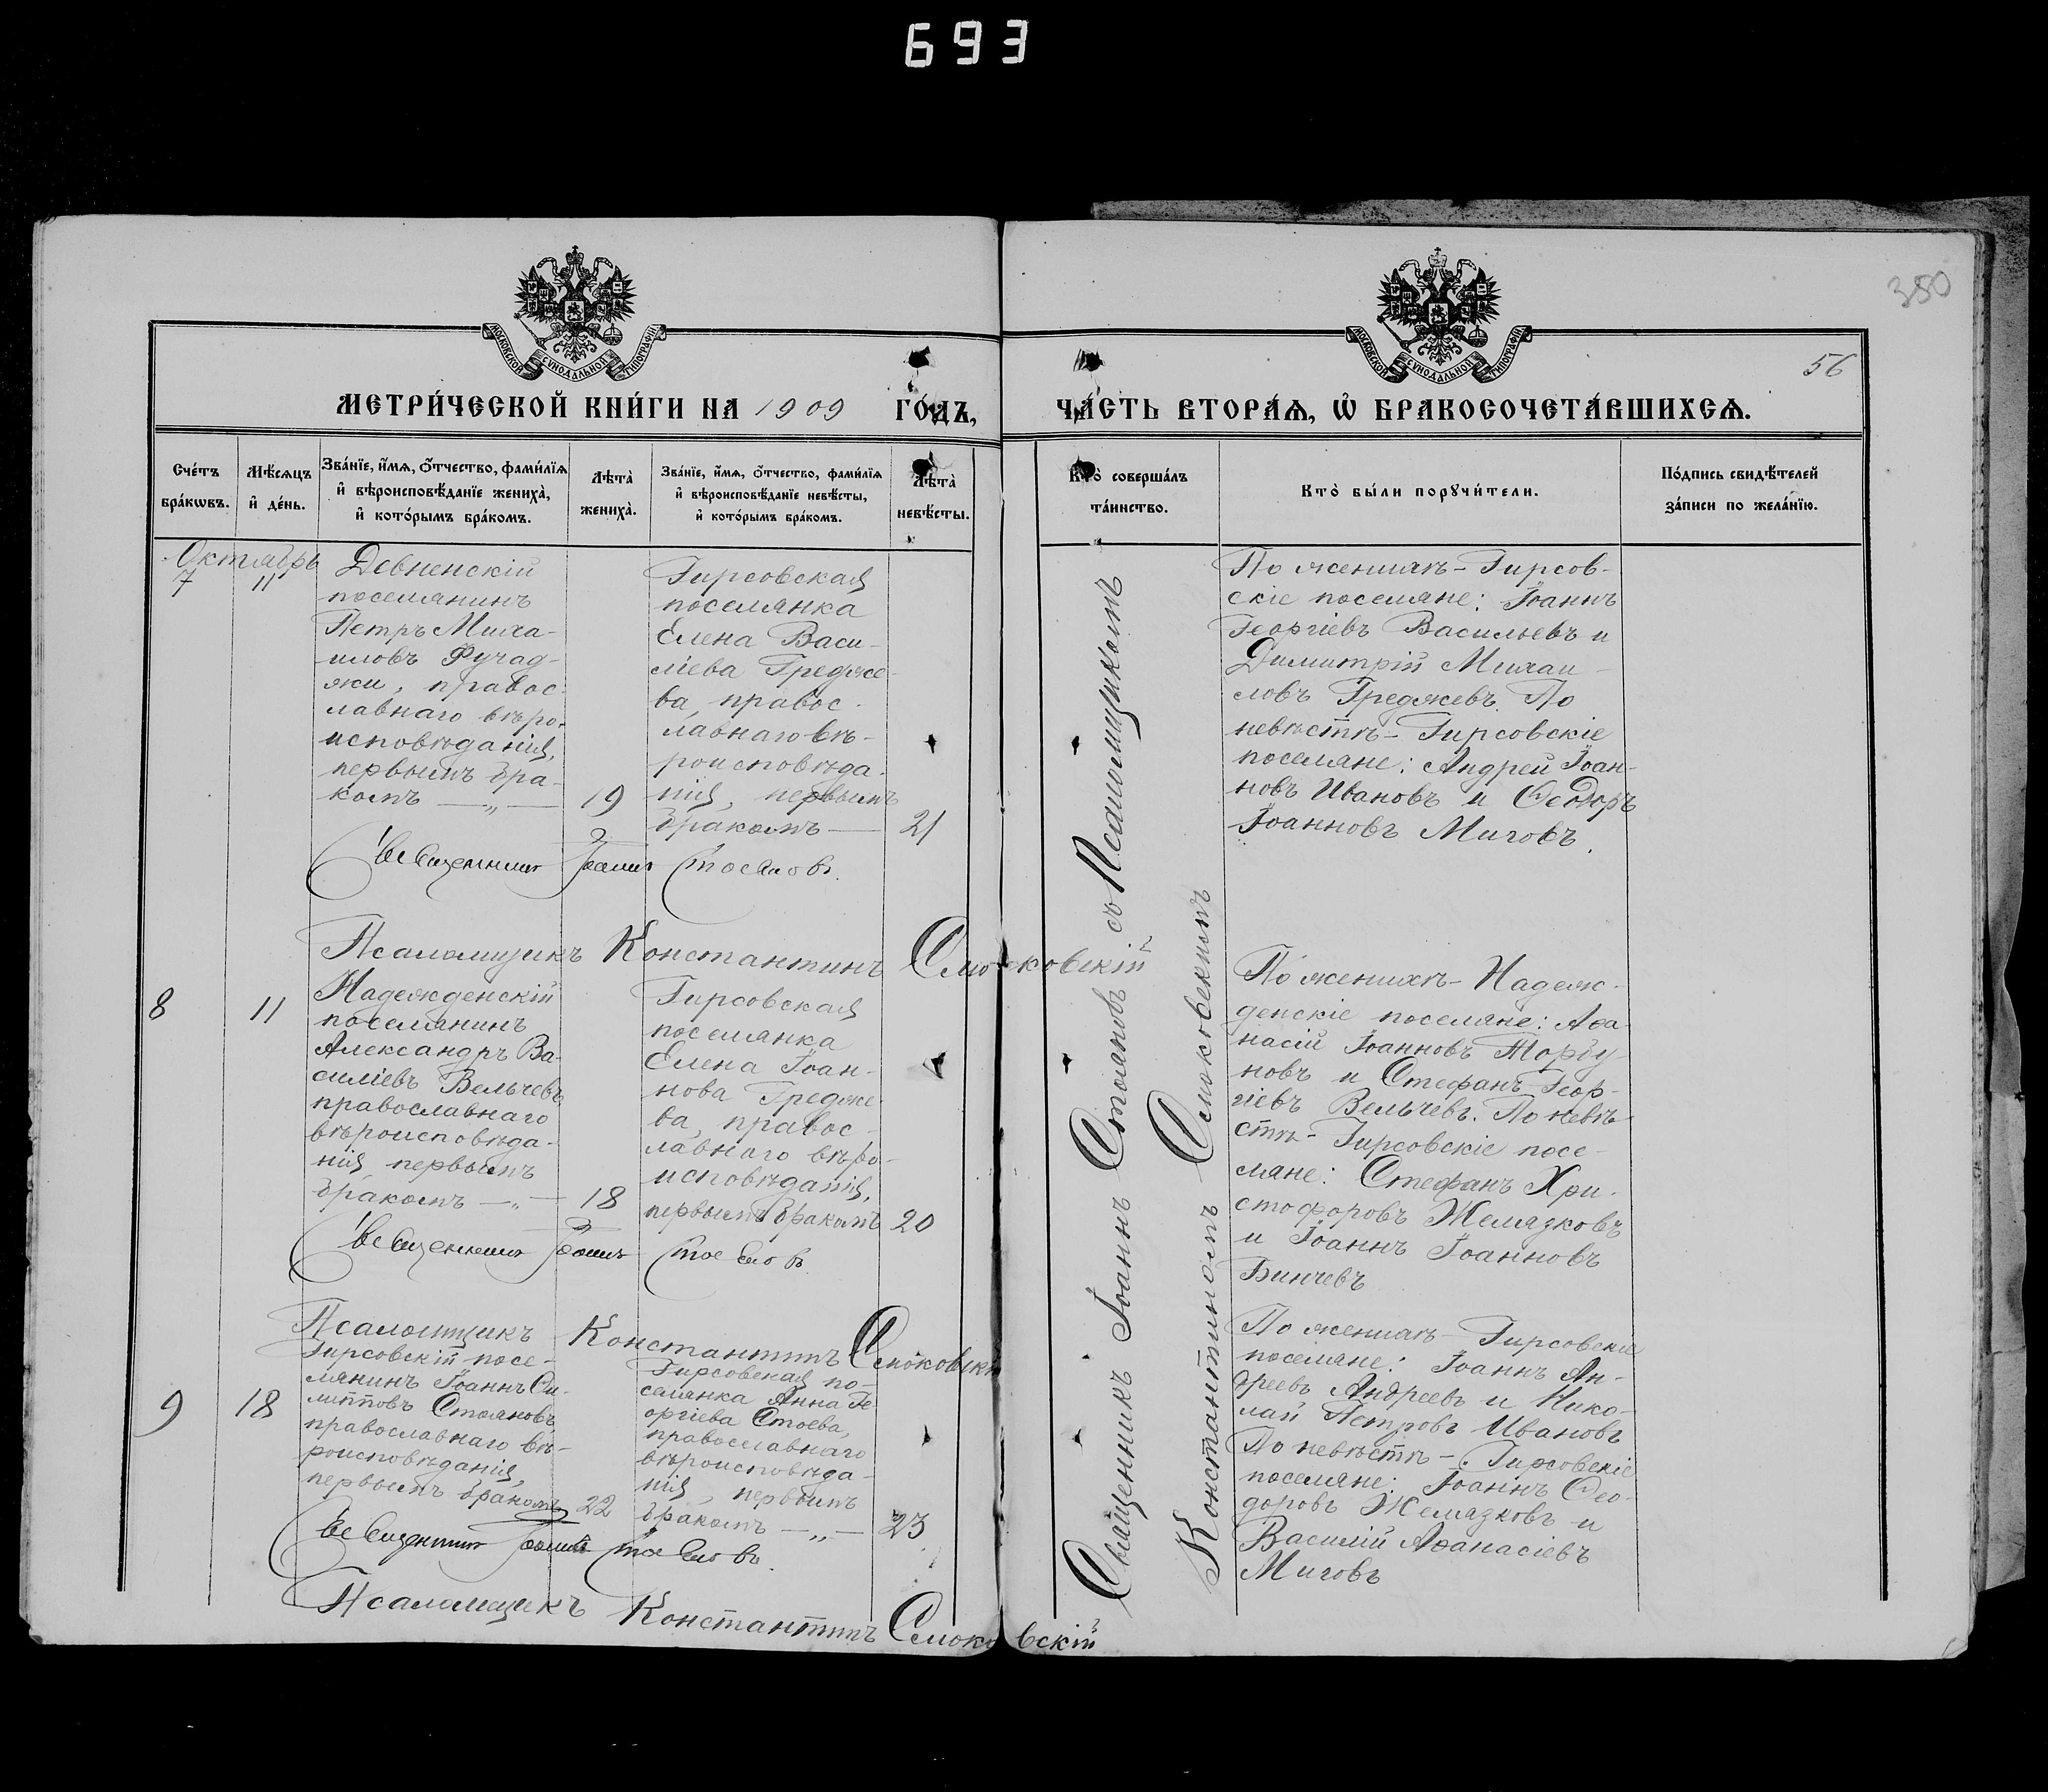 693
380
56
МОСКОВСКОЙ СѴНОДАЛЬНОЙ ТИПОГРАФІИ
МОСКОВСКОЙ СѴНОДАЛЬНОЙ ТИПОГРАФІИ
МЕТРИ́ЧЕСКОЙ КНИ́ГИ НА 1909 ГО́ДЪ,
ЧА́СТЬ ВТОРА́Ѧ, Ѡ҆ БРАКОСОЧЕТА́ВШИХСѦ.
Сче́тъ бра́кѡвъ.
Мѣ́сѧцъ и҆ де́нь.
Зва́нїе, и҆́мѧ, ѻ҆́тчество, фами́лїѧ
и҆ вѣроисповѣ́данїе жениха̀,
и҆ кото́рымъ бра́комъ.
Лѣ́та̀ жениха̀.
Зва́нїе, и҆́мѧ, ѻ҆́тчество, фами́лїѧ
и҆ вѣроисповѣ́данїе невѣ́сты,
и҆ кото́рымъ бра́комъ.
Лѣ́та̀ невѣ́сты.
Кто̀ соверша́лъ та́инство.
Кто̀ бы́ли порꙋчи́тели.
По́дпись свидѣ́телей
за́писи по жела́нїю.
Октябрь
7
11
Девненскій
поселянинъ
Петръ Миха-
иловъ Фучад-
жи, правос-
лавнаго вѣро-
исповѣданія,
первымъ бра-
комъ — „ —
19
Гирсовская
поселянка
Елена Васи-
ліева Гредже-
ва, правос-
лавнаго вѣ-
роисповѣда-
нія, первымъ
бракомъ —
21
По женихѣ - Гирсов-
скіе поселяне: Іоаннъ
Георгіевъ Васильевъ и
Димитрій Михаи-
ловъ Греджевъ. По
невѣстѣ - Гирсовскіе
поселяне: Андрей Іоан-
новъ Ивановъ и Ѳеодоръ
Іоанновъ Миговъ.
Священникъ Іоаннъ Стояновъ.
Псаломщикъ Константинъ Смоковскій
8
11
Надежденскій
поселянинъ
Александръ Ва-
силіевъ Вельчевъ
православнаго
вѣроисповѣда-
нія, первымъ
бракомъ — „ —
18
Гирсовская
поселянка
Елена Іоан-
нова Гредже-
ва, правос-
лавнаго вѣро-
исповѣданія,
первымъ бракомъ
20
По женихѣ - Надеж-
денскіе поселяне: Аѳа-
насій Іоанновъ Торбу-
новъ и Стефанъ Геор-
гіевъ Вельчевъ. По невѣ-
стѣ - Гирсовскіе посе-
ляне: Стефанъ Хри-
стофоровъ Желязковъ
и Іоаннъ Іоанновъ
Бинчевъ
Священникъ Іоаннъ Стояновъ
Псаломщикъ Константинъ Смоковскій
9
18
Гирсовскій посе-
лянинъ Іоаннъ Фи-
липповъ Стояновъ,
православнаго вѣ-
роисповѣданія,
первымъ бракомъ
22
Гирсовская по-
селянка Анна Ге-
оргіева Стоева,
православнаго
вѣроисповѣда-
нія, первымъ
бракомъ — „ —
23
По женихѣ - Гирсовскіе
поселяне: Іоаннъ Ан-
дреевъ Андреевъ и Нико-
лай Петровъ Ивановъ
По невѣстѣ - Гирсовскіе
поселяне: Іоаннъ Ѳео-
доровъ Желязковъ и
Василій Аѳанасіевъ
Миговъ
Священникъ Іоаннъ Стояновъ.
Псаломщикъ Константинъ Смоковскій
Священникъ Іоаннъ Стояновъ съ Псаломщикомъ
Константиномъ Смоковскимъ